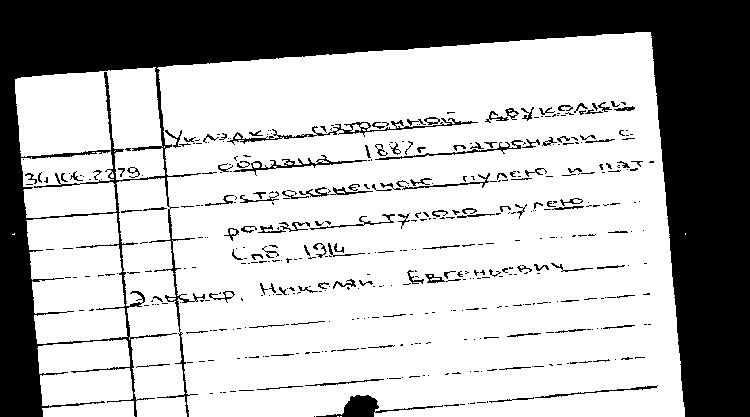 Укладка патронной двуколки
34106.2279 образца 1887г. патронами с
остроконечною пулею и пат-
ронами с тупою пулею.
Спб, 1914
Эльснер, Николай Евгеньевич